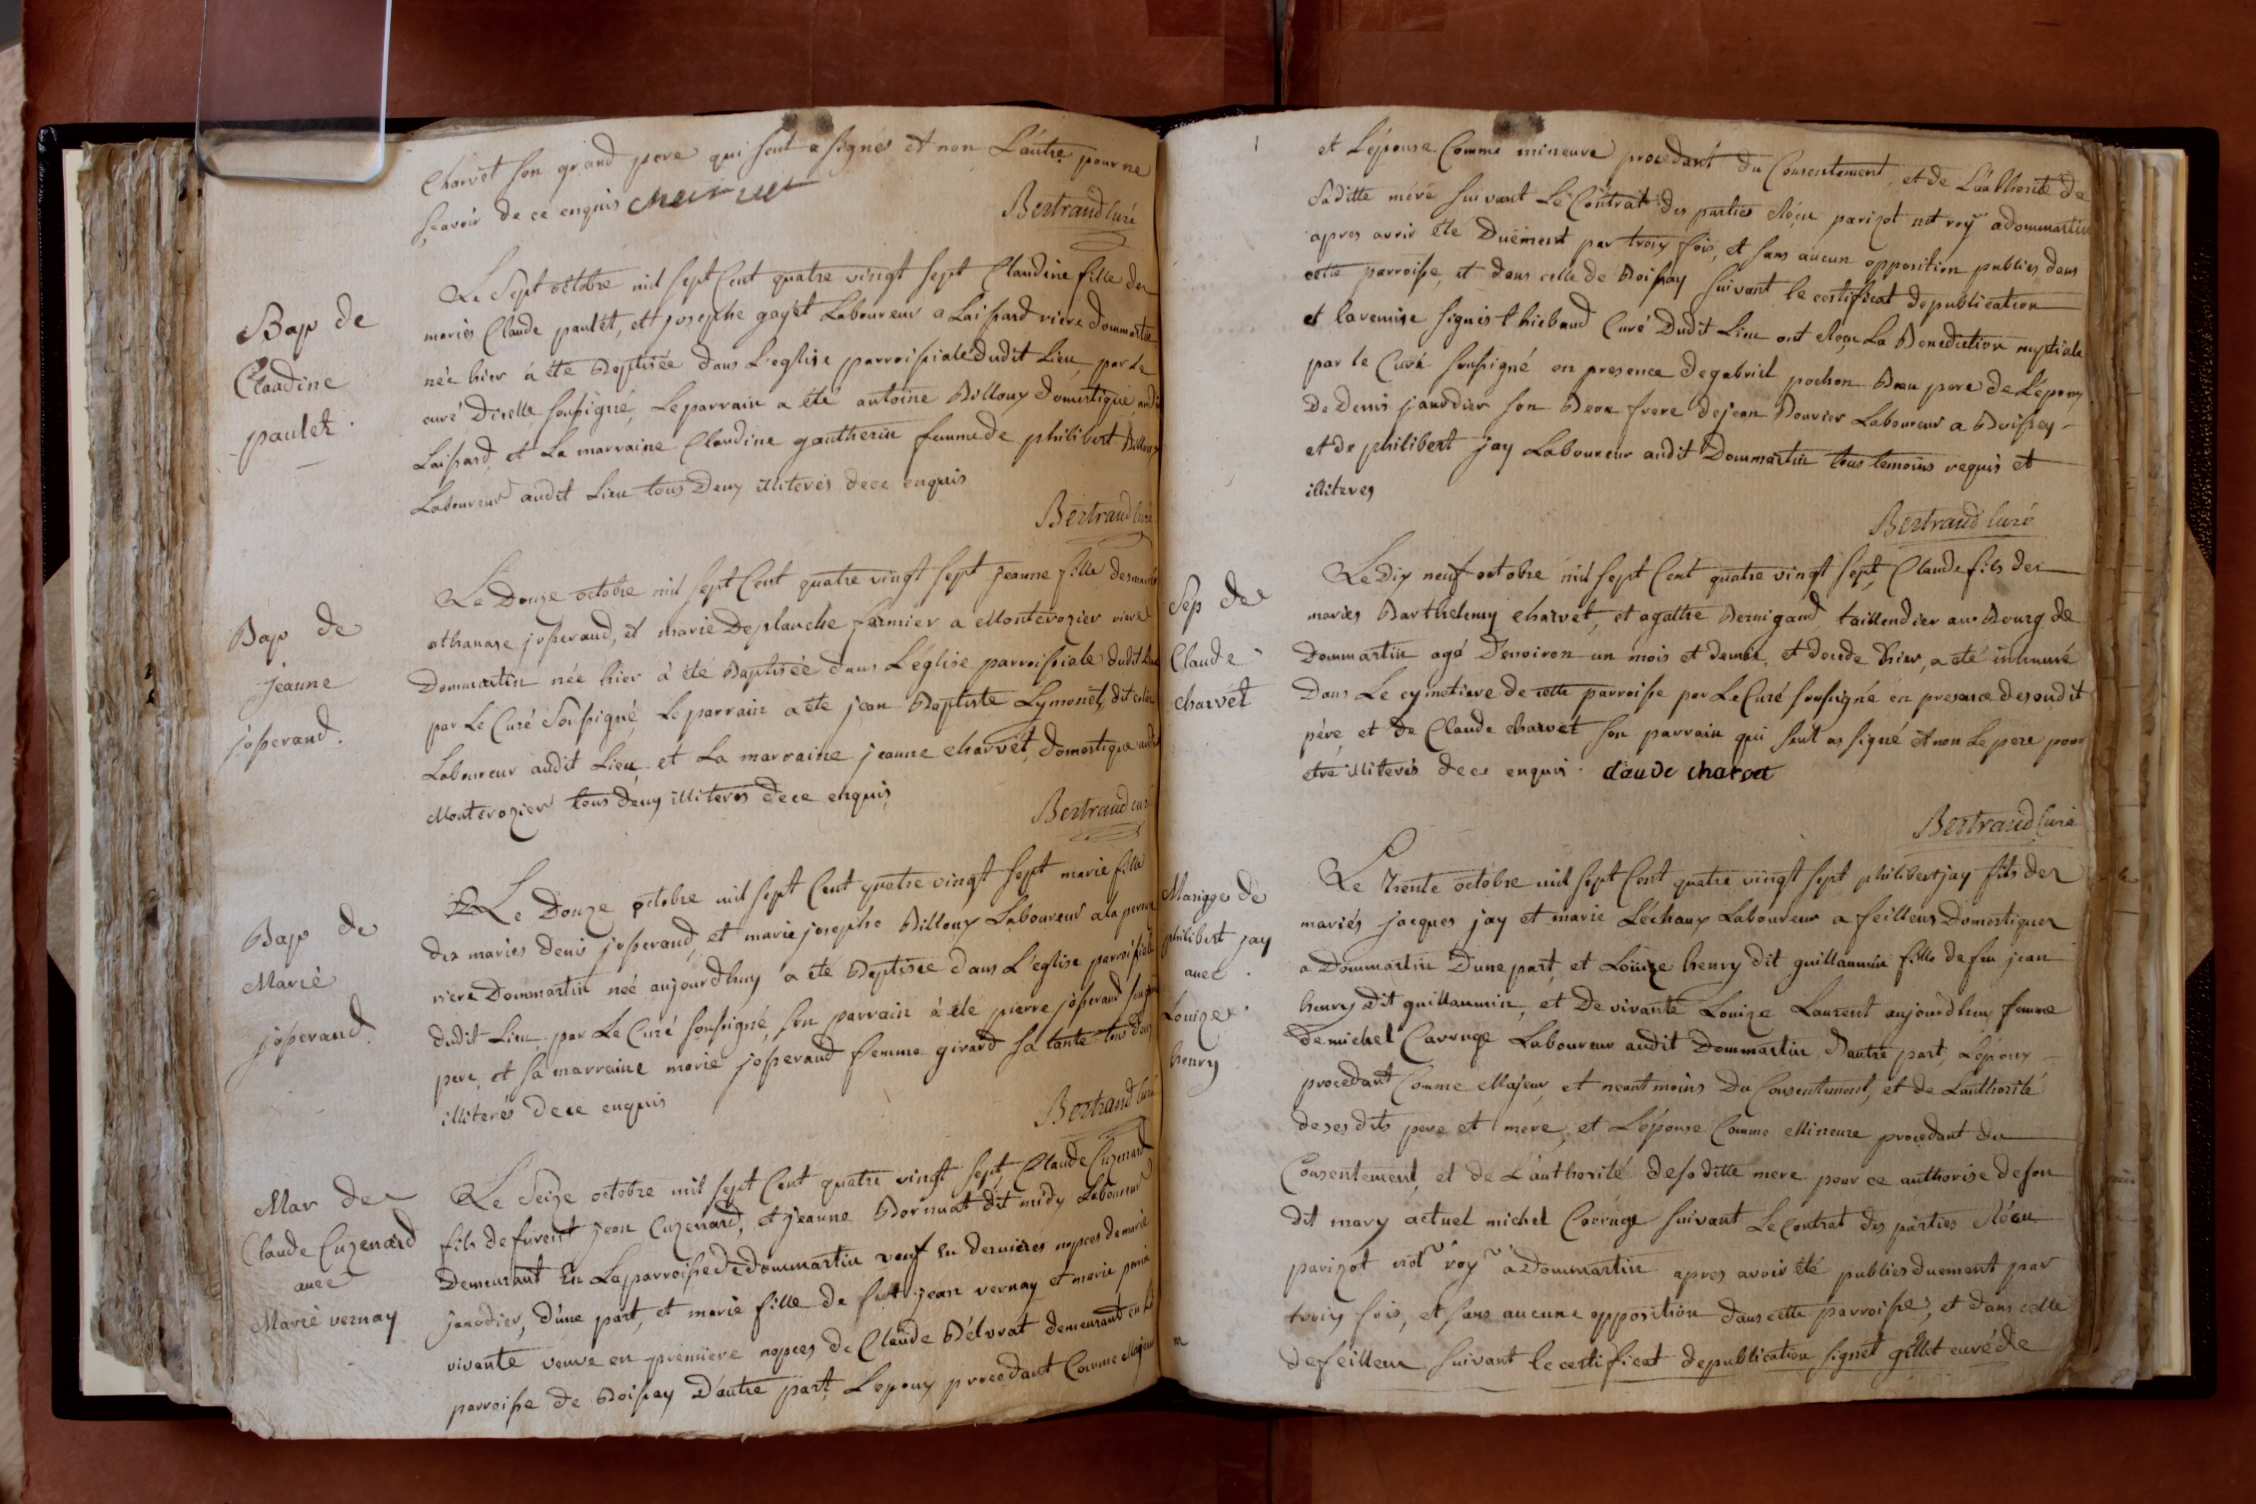 Charvet son grand pere qui sent a signés et non L'autre pour ne
sçavoir de ce enquis
Bertrand Curé
Bap de
Claudine
paulet.
Le Sept octobre mil sept Cent quatre vingt sept Claudine fille des
mariés Claude paulet, et josephe gayet Laboureur a Laissard riere dommartin
née hier a été Baptisée dans L'eglise parroissiale dudit Lieu, par Le
curé D'icelle soussigné, Le parrain a été antoine Billoux domestique audit
Laissard, et La marraine Claudine gautherin femme de philibert Billoux
Laboureur audit Lieu tous Deux illiterés de ce enquis
Bertrand Curé
Bap de
jeanne
josserand.
Le Douze octobre mil sept Cent quatre vingt sept jeanne fille des mariés
athanase josserand, et marie Deplanche fermier a Monterozier riere
Dommartin née hier à été Baptisée dans L'église parroissiale dudit Lieu
par Le Curé Soussigné, Le parrain a été jean Baptiste Lymonet, dit
Laboureur audit Lieu et La marraine jeanne charvet, domestique audit
Monterozier tous deux illiterés de ce enquis
Bertrand curé
Bap de
Marie
josserand.
Le Douze octobre mil sept Cent quatre vingt sept marie fille
des mariés denis josserand, et marie josephe Billoux Laboureur a la
riere Dommartin née aujourdhuy a été Baptisée dans L'eglise parroissiale
dudit Lieu par Le Curé soussigné, son parrain à été pierre josserand son grand
pere, et sa marraine marie josserand femme girard sa tante tous deux
illiterés de ce enquis
Bertrand Curé
Mar de
Claude Cuzenard
avec
Marie vernay
Le Seize octobre mil sept Cent quatre vingt sept Claude Cuzenard
fils de furent jean Cuzenard, et jeanne Bornuat dit midy Laboureur
Demeurant En La parroisse de dommartin veuf En dernieres nopces de marie
janodier, d'une part, et marie fille de fut jean vernay et marie
vivante veuve en première nopces de Claude Bélorat demeurant en la
parroisse de Boissay D'autre part, L'epoux procedant Comme Majeur
et L'épouse Comme mineure procedant du Consentement, et de L'authorité de
Saditte mére suivant Le Contrat des parties Réçu parizot not roy a dommartin
apres avoir été Duëment par trois fois, et sans aucun opposition publiés dans
cette parroisse, et dans celle de Boissay suivant le certificat de publication
et la remise signés thiebaud Curé Dudit Lieu ont reçu La Benediction nuptiale
par le Curé soussigné en presence de gabriel pochon Beau pere de L'epoux
De Denis janodier son Beau frere de jean Bouvier Laboureur a Boissey
et de philibert jay Laboureur audit Dommartin tous temoins requis et
illiteres
Bertrand Curé
Sep de
Claude
charvét
Le dix neuf octobre mil sept Cent quatre vingt sept, Claude fils des
mariés Barthelemy charvet, et agathe Bernigaud taillendier au Bourg de
Dommartin agé D'environ un mois et demie, et décédé hier, a eté inhumé
Dans Le cymetiere de cette parroisse par Le Curé soussigné en presence de sondit
pére, et de Claude charvet son parrain qui sent as signé et non Le pere pour
etre illiterés de ce enquis. claude charvet
Bertrand Curé
Mariage de
philibert jay
avec
Louize
henry
Le Trente octobre mil sept Cent quatre vingt sept philibert jay fils des
mariés jacques jay et marie Léchaux Laboureur a feillens Domestiques
a Dommartin D'une part, et Louize henry dit guillaumin fille de feu jean
henry dit guillaumin, et de vivante Louize Laurent aujourdhuy femme
de michel Carruge Laboureur audit Dommartin D'autre part, L'époux
procedant Comme Majeur, et neantmoins Du Consentement, et de L'authorité
de ses dits pere et mere, et L'épouse Comme Mineure procedant du
Consentement, et de L'authorité de saditte mere pour ce authorise de son
dit mary actuel michel Carruge suivant Le Contrat des parties Réçu
parizot not roy à Dommartin apres avoir été publiés duement par
trois fois, et sans aucune opposition dans cette parroisse, et dans celle
de feillens suivant le certificat de publication signét gillet curé de